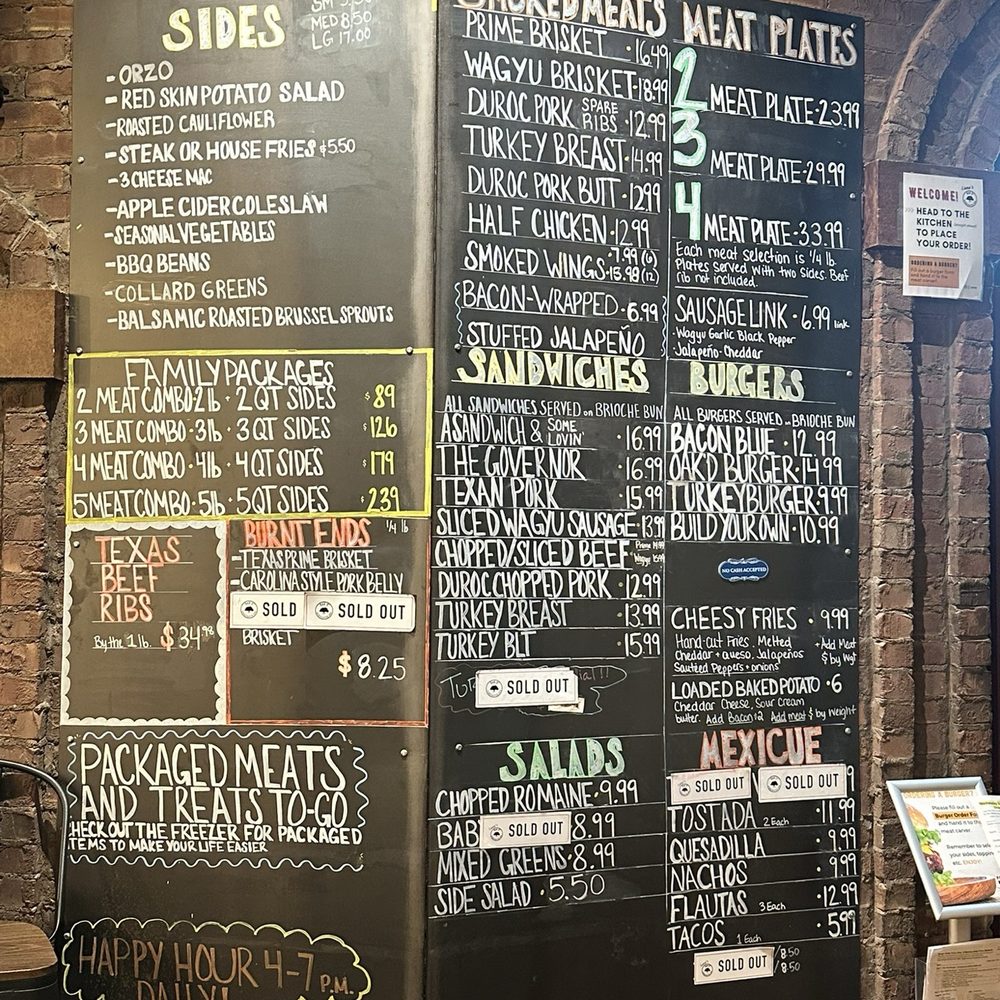 SIDES
MED 8.50
LG 17.00
- ORZO
- RED SKIN POTATO SALAD
- ROASTED CAULIFLOWER
- STEAK OR HOUSE FRIES $5.50
- 3 CHEESE MAC
- APPLE CIDER COLESLAW
- SEASONAL VEGETABLES
- BBQ BEANS
- COLLARD GREENS
- BALSAMIC ROASTED BRUSSEL SPROUTS
FAMILY PACKAGES
2 MEAT COMBO • 2 lb • 2 QT SIDES $89
3 MEAT COMBO • 3 lb • 3 QT SIDES $126
4 MEAT COMBO • 4 lb • 4 QT SIDES $179
5 MEAT COMBO • 5 lb • 5 QT SIDES $239
TEXAS
BEEF
RIBS
By the 1 lb. $34.98
BURNT ENDS 1/4 lb
- TEXAS PRIME BRISKET
- CAROLINA STYLE PORK BELLY
SOLD SOLD OUT
BRISKET
$8.25
PACKAGED MEATS
AND TREATS TO-GO
CHECK OUT THE FREEZER FOR PACKAGED
ITEMS TO MAKE YOUR LIFE EASIER
HAPPY HOUR 4-7 P.M.
DAILY!
SMOKED MEATS
PRIME BRISKET • 16.49
WAGYU BRISKET • 18.99
DUROC PORK SPARE RIBS • 12.99
TURKEY BREAST • 14.99
DUROC PORK BUTT • 12.99
HALF CHICKEN • 12.99
SMOKED WINGS • 7.99 (6)
• 15.98 (12)
BACON-WRAPPED • 6.99
STUFFED JALAPEÑO
SANDWICHES
ALL SANDWICHES SERVED on BRIOCHE BUN
A SANDWICH & SOME LOVIN' • 16.99
THE GOVERNOR • 16.99
TEXAN PORK • 15.99
SLICED WAGYU SAUSAGE • 13.99
CHOPPED/SLICED BEEF
DUROC CHOPPED PORK • 12.99
TURKEY BREAST • 13.99
TURKEY BLT • 15.99
SOLD OUT
SALADS
CHOPPED ROMAINE • 9.99
BAB SOLD OUT 8.99
MIXED GREENS • 8.99
SIDE SALAD • 5.50
MEAT PLATES
2 MEAT PLATE • 23.99
3 MEAT PLATE • 29.99
4 MEAT PLATE • 33.99
Each meat selection is 1/4 lb.
Plates served with two sides. Beef
rib not included.
SAUSAGE LINK • 6.99 link
• Wagyu Garlic Black Pepper
• Jalapeño-Cheddar
BURGERS
ALL BURGERS SERVED on BRIOCHE BUN
BACON BLUE • 12.99
OAK'D BURGER • 14.99
TURKEY BURGER 9.99
BUILD YOUR OWN • 10.99
NO CASH ACCEPTED
CHEESY FRIES • 9.99
Hand-cut Fries. Melted + Add Meat
Cheddar + queso, Jalapeños $ by Wgt
Sautéed Peppers + onions
LOADED BAKED POTATO • 6
Cheddar Cheese, Sour Cream
butter. Add Bacon $2 Add meat $ by weight
MEXICUE
SOLD OUT SOLD OUT 9
TOSTADA 2 Each • 11.99
QUESADILLA 9.99
NACHOS • 9.99
FLAUTAS 3 Each • 12.99
TACOS 1 Each 5.99
SOLD OUT /8.50
/8.50
WELCOME!
HEAD TO THE
KITCHEN
TO PLACE
YOUR ORDER!
ORDERING A BURGER?
Fill out a burger form
and hand it to the
meat carver!
ORDERING A BURGER?
Please fill out a
Burger Order Form
and hand it to the
meat carver.
Remember to
your sides,
etc. ENJOY!